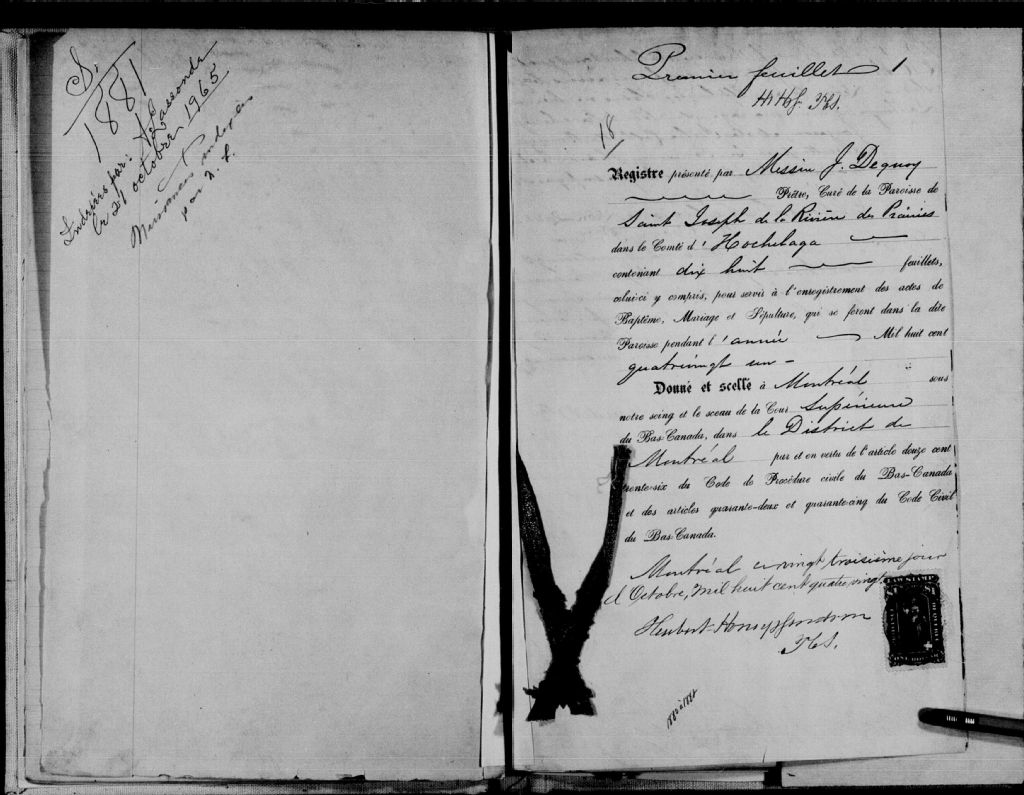 S.
1881
Indexées par: Lassonde
le 21 octobre 1965
Naissances indexées
par
Premier feuillet 1
18
Registre présenté par Messire J. Dequoy
Prêtre, Curé de la Paroisse de
Saint Joseph de la Rivière des Prairies
dans le Comté d'Hochelaga
contenant dix huit feuillets,
celui-ci y compris, pour servir à l'enregistrement des actes de
Baptême, Mariage et Sépulture, qui se feront dans la dite
Paroisse pendant l'année Mil huit cent
quatrevingt un -
Donné et scellé à Montréal sous
notre seing et le sceau de la Cour Supérieure
du Bas-Canada, dans le District de
Montréal par et en vertu de l'article douze cent
trente-six du Code de Procédure civile du Bas-Canada
et des articles quarante-deux et quarante-cinq du Code Civil
du Bas-Canada.
Montréal ce vingt troisième jour
d'Octobre, Mil huit cent quatre vingt
LAW STAMP
$1
ONE DOLLAR